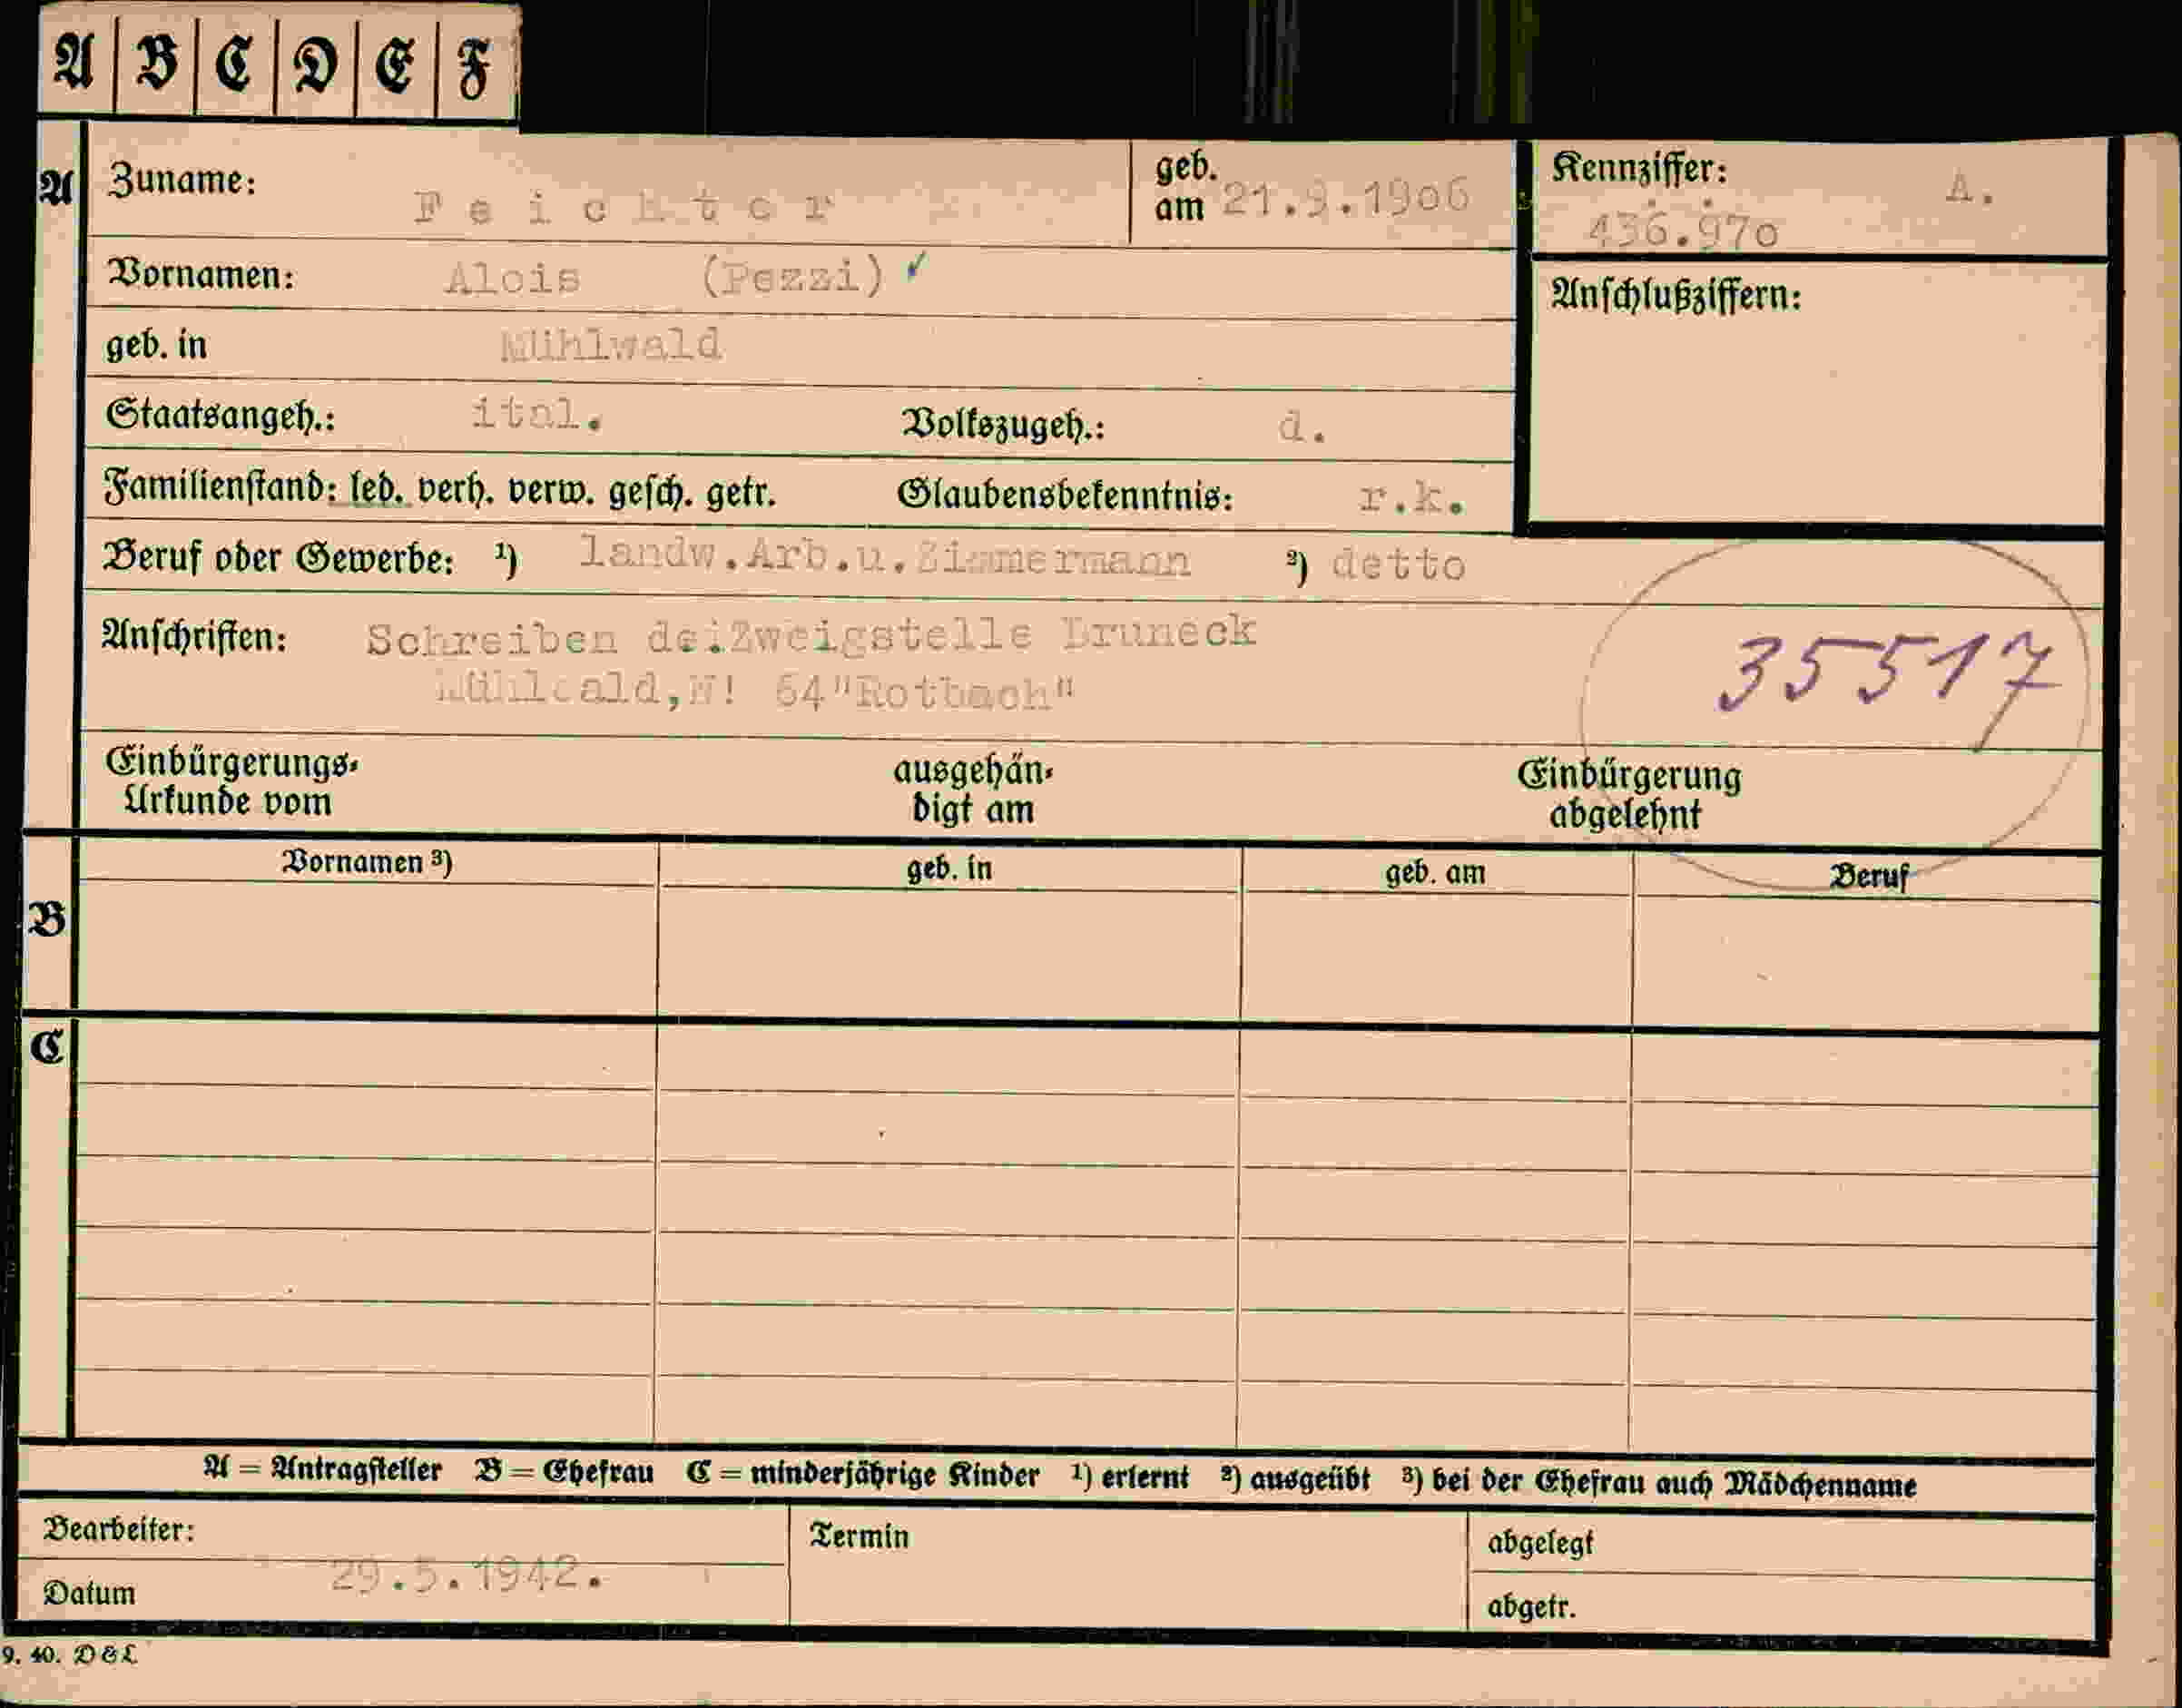 A B C D E F
A Zuname: Feichter geb. am 21.9.1906 Kennziffer: A. 436.970
Vornamen: Alois (Pezzi) ✓ Anschlußziffern:
geb. in Mühlwald
Staatsangeh.: ital. Volkszugeh.: d.
Familienstand: led. verh. verw. gesch. getr. Glaubensbekenntnis: r.k.
Beruf oder Gewerbe: ¹) landw.Arb.u.Zimmermann ²) detto
Anschriften: Schreiben der Zweigstelle Bruneck
Mühlwald,N! 64"Rotbach"
35517
Einbürgerungs-
Urkunde vom
ausgehän-
digt am
Einbürgerung
abgelehnt
Vornamen ³) geb. in geb. am Beruf
B
C
A = Antragsteller B = Ehefrau C = minderjährige Kinder ¹) erlernt ²) ausgeübt ³) bei der Ehefrau auch Mädchenname
Bearbeiter: Termin abgelegt
Datum 29.5.1942. abgetr.
9. 40. D & L